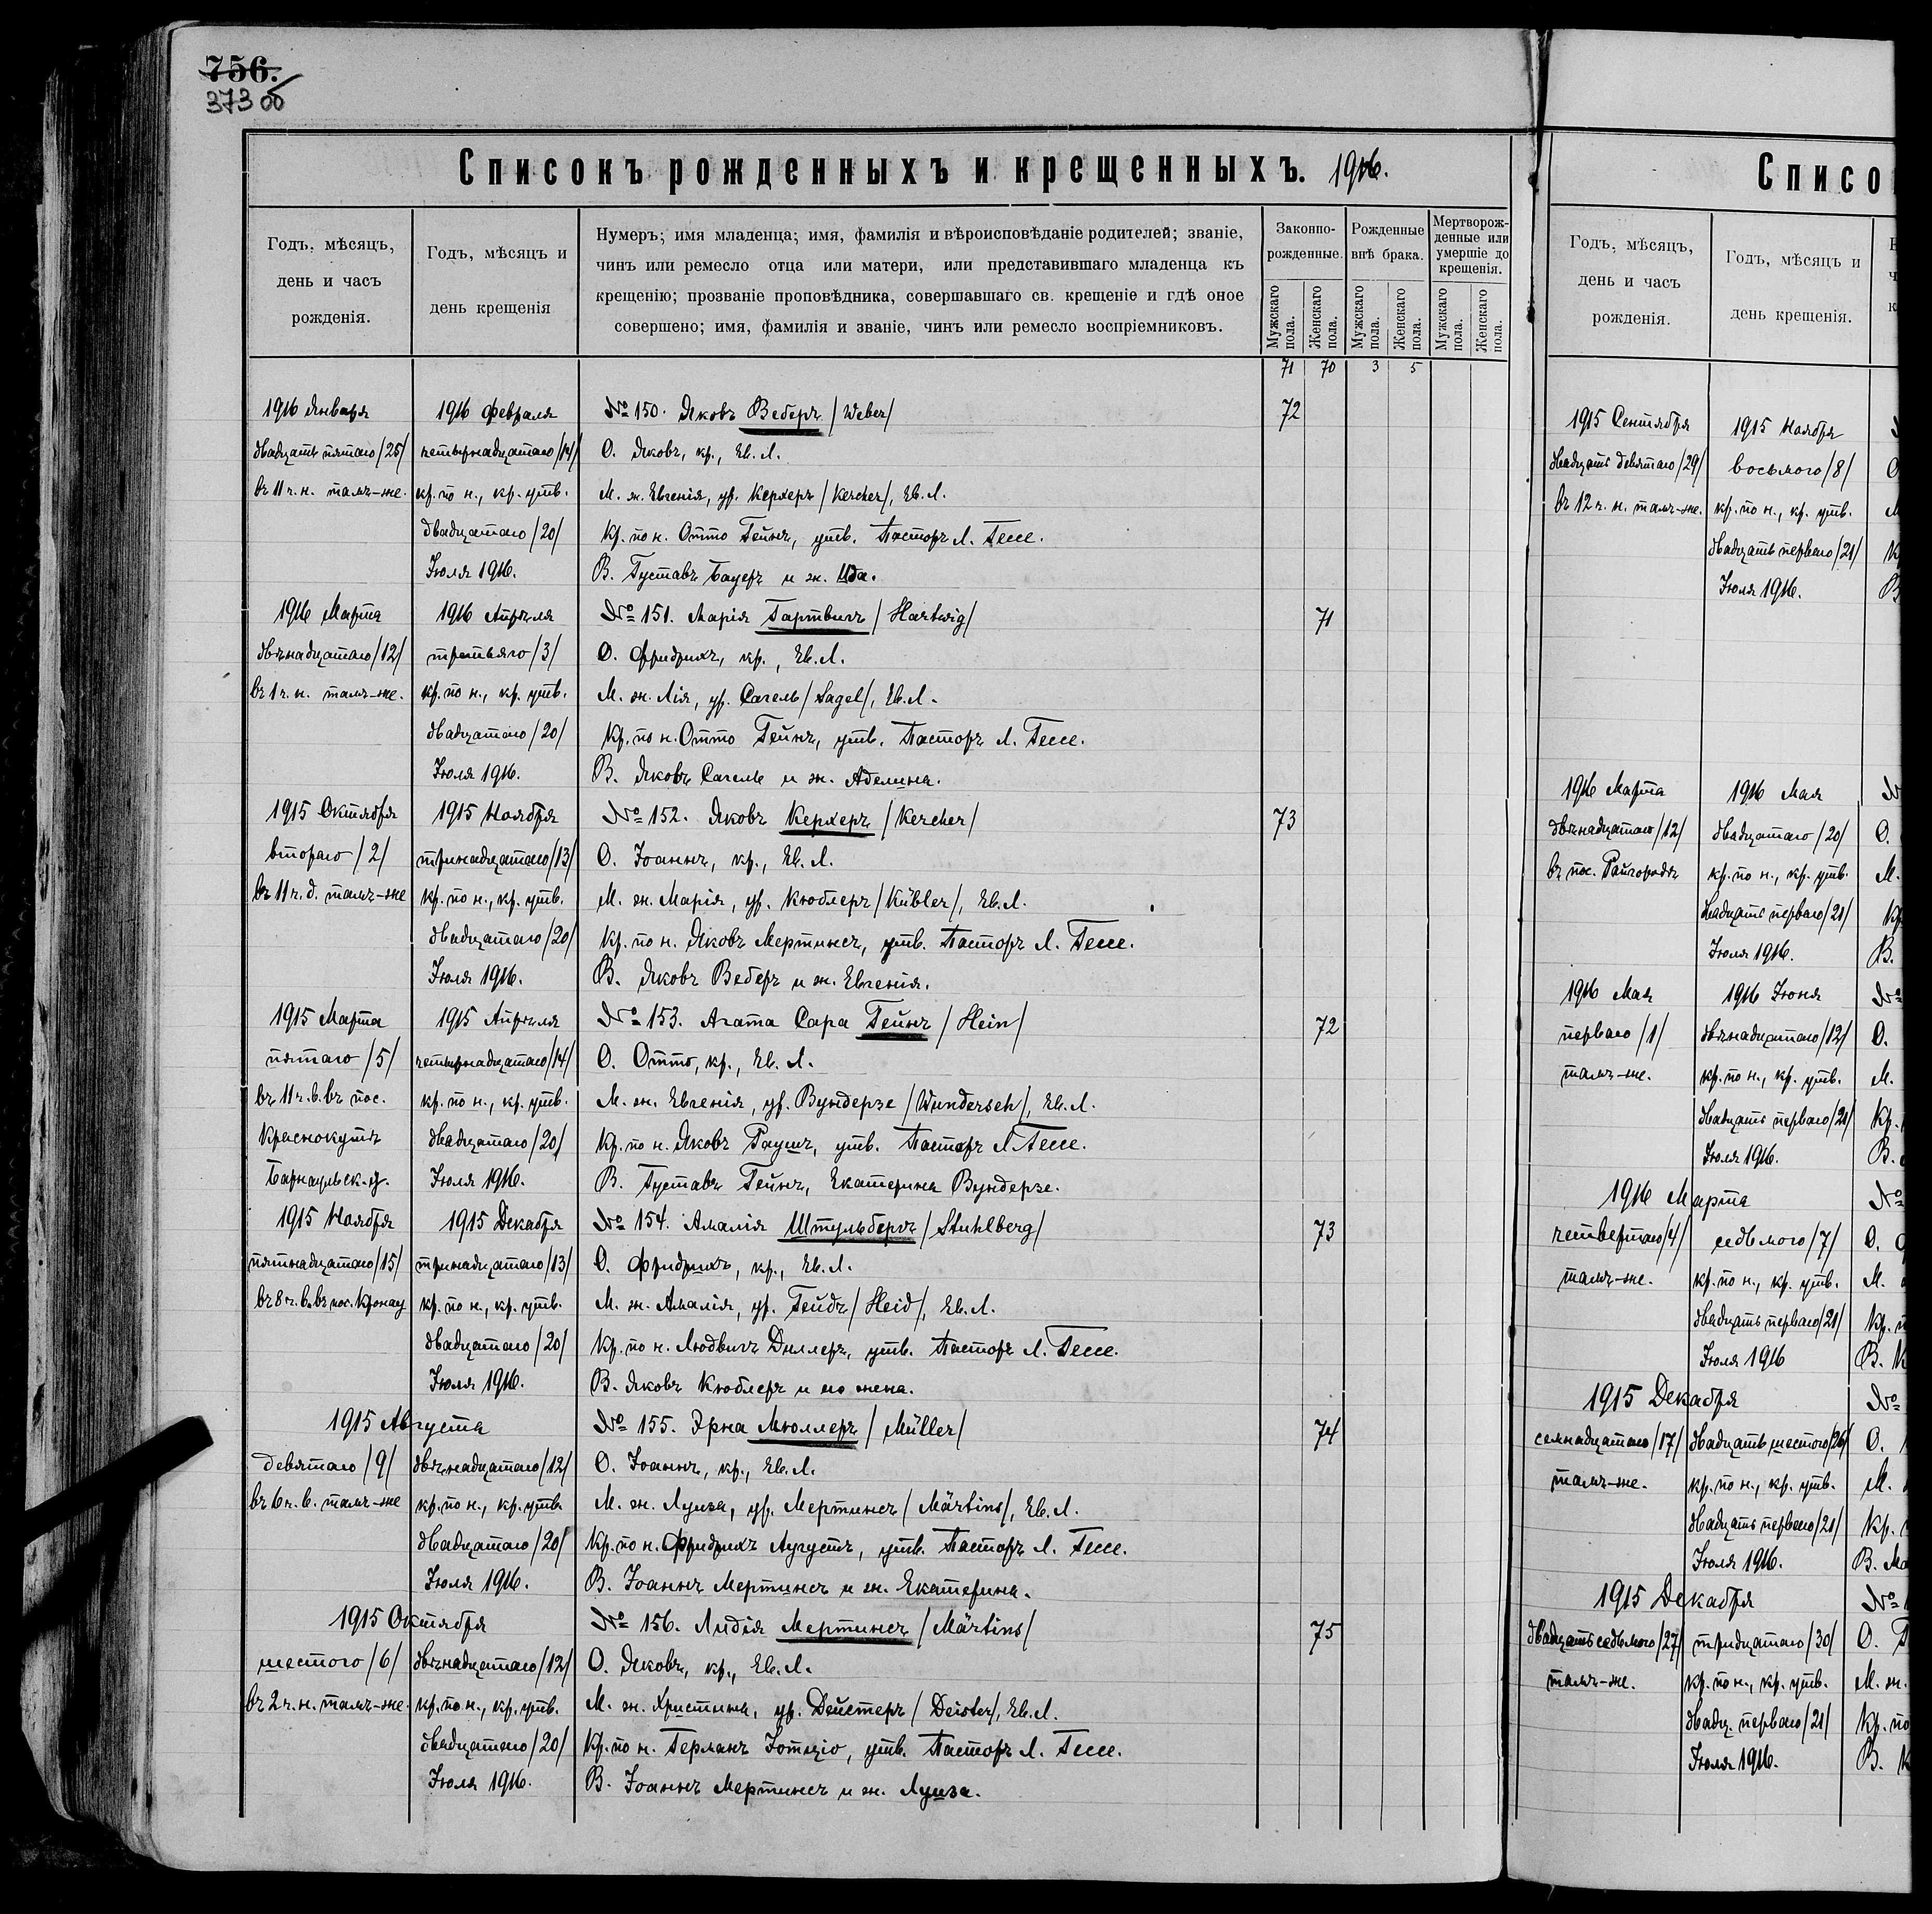 756.
373 об
Списокъ рожденныхъ и крещенныхъ. 1916.
Годъ, мѣсяцъ,
день и часъ
рожденія.
Годъ, мѣсяцъ и
день крещенія
Нумеръ; имя младенца; имя, фамилія и вѣроисповѣданіе родителей; званіе,
чинъ или ремесло отца или матери, или представившаго младенца къ
крещенію; прозваніе проповѣдника, совершавшаго св. крещеніе и гдѣ оное
совершено; имя, фамилія и званіе, чинъ или ремесло воспріемниковъ.
Законно-
рожденные.
Рожденные
внѣ брака.
Мертворож-
денные или
умершіе до
крещенія.
Мужскаго пола.
Женскаго пола.
Мужскаго пола.
Женскаго пола.
Мужскаго пола.
Женскаго пола.
71 70 3 5
1916 Января
двадцать пятаго /25/
въ 11 ч. н. тамъ-же.
1916 Февраля
четырнадцатаго /14/
кр. по н., кр. утв.
двадцатаго /20/
Іюля 1916.
№ 150. Яковъ Веберъ /Weber/
О. Яковъ, кр., Ев. Л.
М. ж. Евгенія, ур. Керхеръ /Kercher/, Ев. Л.
Кр. по н. Отто Гейнъ, утв. Пасторъ Л. Гессе.
В. Густавъ Бауеръ и ж. Ида.
72
1916 Марта
двѣнадцатаго /12/
въ 1 ч. н. тамъ-же.
1916 Апрѣля
третьяго /3/
кр. по н., кр. утв.
двадцатаго /20/
Іюля 1916.
№ 151. Марія Гартвигъ /Hartwig/
О. Фридрихъ, кр., Ев. Л.
М. ж. Лія, ур. Сагель /Sagel/, Ев. Л.
Кр. по н. Отто Гейнъ, утв. Пасторъ Л. Гессе.
В. Яковъ Сагель и ж. Аделина.
71
1915 Октября
втораго /2/
въ 11 ч. д. тамъ-же
1915 Ноября
тринадцатаго /13/
кр. по н., кр. утв.
двадцатаго /20/
Іюля 1916.
№ 152. Яковъ Керхеръ /Kercher/
О. Іоаннъ, кр., Ев. Л.
М. ж. Марія, ур. Кюблеръ /Kübler/, Ев. Л.
Кр. по н. Яковъ Мертинсъ, утв. Пасторъ Л. Гессе.
В. Яковъ Веберъ и ж. Евгенія.
73
1915 Марта
пятаго /5/
въ 11 ч. в. въ пос.
Краснокутѣ
Барнаульск. у.
1915 Апрѣля
четырнадцатаго /14/
кр. по н., кр. утв.
двадцатаго /20/
Іюля 1916.
№ 153. Агата Сара Гейнъ /Hein/
О. Отто, кр., Ев. Л.
М. ж. Евгенія, ур. Вундерзе /Wunderseh/, Ев. Л.
Кр. по н. ЯковъРаушъ, утв. Пасторъ Л. Гессе.
В. Густавъ Гейнъ, Екатерина Вундерзе.
72
1915 Ноября
пятнадцатаго /15/
въ 8 ч. в. въ пос. Кронау
1915 Декабря
тринадцатаго /13/
кр. по н., кр. утв.
двадцатаго /20/
Іюля 1916.
№ 154. Амалія Штульбергъ /Stuhlberg/
О. Фридрихъ, кр., Ев. Л.
М. ж. Амалія, ур. Гейдъ /Heid/, Ев. Л.
Кр. по н. Людвигъ Диллеръ, утв. Пасторъ Л. Гессе.
В. Яковъ Кюблеръ и его жена.
73
1915 Августа
девятаго /9/
въ 6 ч. в. тамъ-же
двѣнадцатаго /12/
кр. по н., кр. утв.
двадцатаго /20/
Іюля 1916.
№ 155. Эрна Мюллеръ /Müller/
О. Іоаннъ, кр., Ев. Л.
М. ж. Луиза, ур. Мертинсъ /Märtins/, Ев. Л.
Кр. по н. Фридрихъ Аугустъ, утв. Пасторъ Л. Гессе.
В. Іоаннъ Мертинсъ и ж. Екатерина.
74
1915 Октября
шестого /6/
въ 2 ч. н. тамъ-же.
двѣнадцатаго /12/
кр. по н., кр. утв.
двадцатаго /20/
Іюля 1916.
№ 156. Лидія Мертинсъ /Märtins/
О. Яковъ, кр., Ев. Л.
М. ж. Христина, ур. Дейстеръ /Deister/, Ев. Л.
Кр. по н. Германъ Іотціо, утв. Пасторъ Л. Гессе.
В. Іоаннъ Мертинсъ и ж. Луиза.
75
Списо
Годъ, мѣсяцъ,
день и часъ
рожденія.
Годъ, мѣсяцъ и
день крещенія.
1915 Сентября
двадцать девятаго /29/
въ 12 ч. н. тамъ-же.
1915 Ноября
восьмого /8/
кр. по н., кр. утв.
двадцать перваго /21/
Іюля 1916.
1916 Марта
двѣнадцатаго /12/
въ пос. Райгородѣ
1916 Мая
двадцатаго /20/
кр. по н., кр. утв.
двадцать перваго /21/
Іюля 1916.
О.
М.
Кр
В.
1916 Мая
перваго /1/
тамъ-же.
1916 Іюня
двѣнадцатаго /12/
кр. по н., кр. утв.
двадцать перваго /21/
Іюля 1916.
№
О.
М.
Кр.
В.
1916 Марта
четвертаго /4/
тамъ-же.
седьмого /7/
кр. по н., кр. утв.
двадцать перваго /21/
Іюля 1916
№
О.
М.
Кр. п
В. К
1915 Декабря
семнадцатаго /17/
тамъ-же.
двадцать шестого /26/
кр. по н., кр. утв.
двадцать перваго /21/
Іюля 1916.
№
О.
М.
Кр.
В. Ма
1915 Декабря
двадцать седьмого /27/
тамъ-же.
тридцатаго /30/
кр. по н., кр. утв.
двадц. перваго /21/
Іюля 1916.
№
О.
М. ж.
Кр. по
В. К